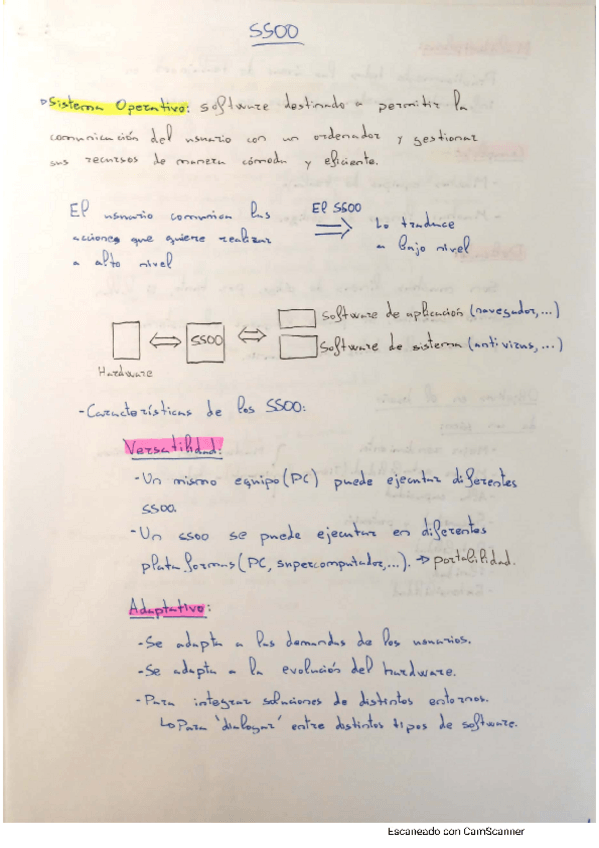 SSOO
Sistema Operativo: software destinado a permitir la
comunicación del usuario con un ordenador y gestionar
sus recursos de manera cómoda y eficiente.
El usuario comunica las
acciones que quiere realizar
a alto nivel
El SSOO
⇒
Lo traduce
a bajo nivel
Software de aplicación (navegador,...)
⇔ SSOO ⇔
Software de sistema (antivirus,...)
Hardware
-Características de los SSOO:
Versatilidad:
-Un mismo equipo (PC) puede ejecutar diferentes
SSOO.
-Un SSOO se puede ejecutar en diferentes
plataformas (PC, supercomputador,...). → portabilidad.
Adaptativo:
-Se adapta a las demandas de los usuarios.
-Se adapta a la evolución del hardware.
-Para integrar soluciones de distintos entornos.
↳ Para 'dialogar' entre distintos tipos de software.
Escaneado con CamScanner